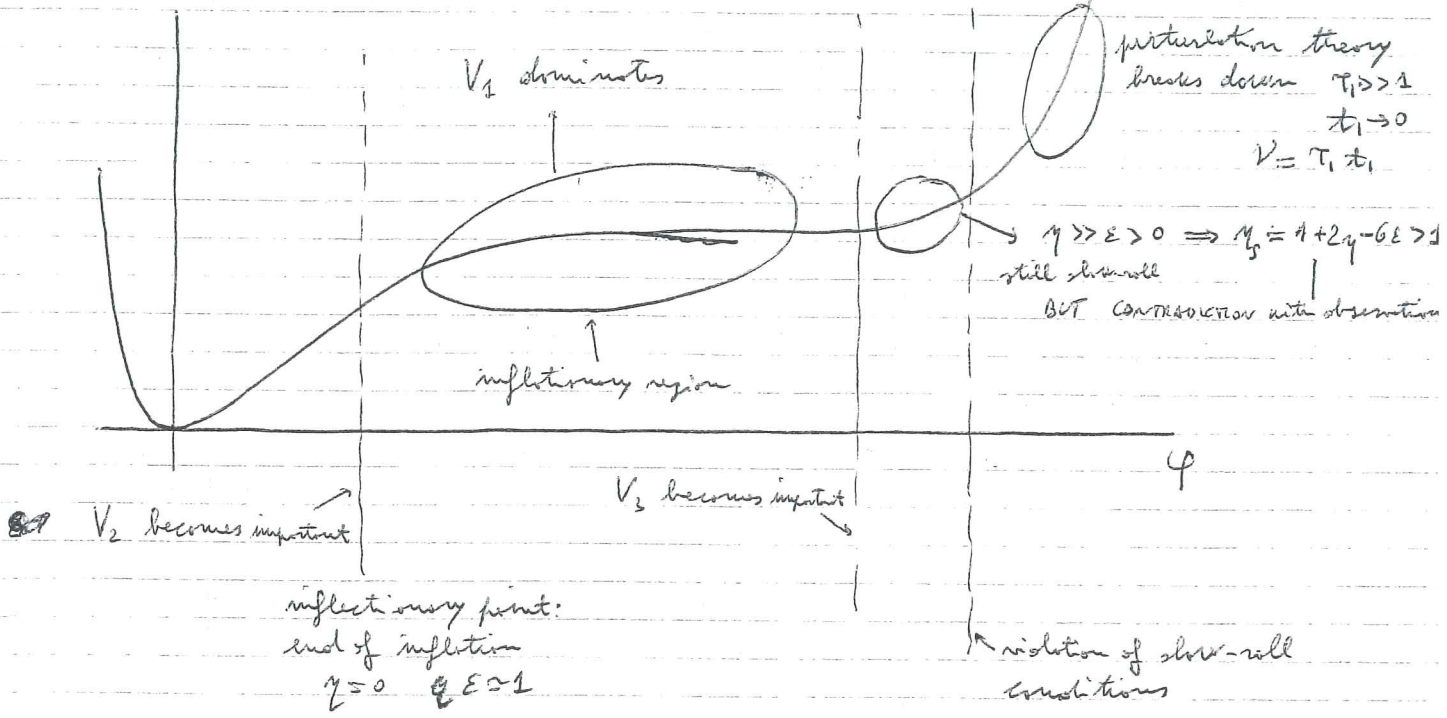 V₁ dominates
perturbation theory
breaks down τ₁>>1
t₁→0
V = τ₁ t₁
→ η >> ε > 0 ⇒ ηₛ ≃ 1+2η-6ε > 1
still slow-roll
BUT CONTRADICTION with observation
inflationary region
φ
V₂ becomes important
V₃ becomes important
inflectionary point:
end of inflation
η=0 ε≃1
violation of slow-roll
conditions